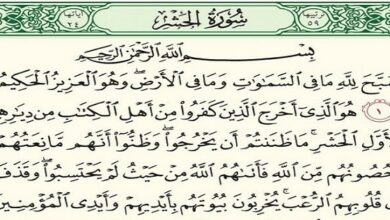 ترتيبها ٥٩ سُورَةُ الحَشْرِ آياتها ٢٤
بِسْمِ اللَّهِ الرَّحْمَٰنِ الرَّحِيمِ
سَبَّحَ لِلَّهِ مَا فِي السَّمَٰوَٰتِ وَمَا فِي الْأَرْضِ ۖ وَهُوَ الْعَزِيزُ الْحَكِيمُ
١ هُوَ الَّذِي أَخْرَجَ الَّذِينَ كَفَرُوا مِنْ أَهْلِ الْكِتَٰبِ مِن دِيَٰرِهِمْ
لِأَوَّلِ الْحَشْرِ ۚ مَا ظَنَنتُمْ أَن يَخْرُجُوا ۖ وَظَنُّوا أَنَّهُم مَّانِعَتُهُمْ
حُصُونُهُم مِّنَ اللَّهِ فَأَتَىٰهُمُ اللَّهُ مِنْ حَيْثُ لَمْ يَحْتَسِبُوا ۖ وَقَذَفَ
قُلُوبِهِمُ الرُّعْبَ ۚ يُخْرِبُونَ بُيُوتَهُم بِأَيْدِيهِمْ وَأَيْدِي الْمُؤْمِنِينَ